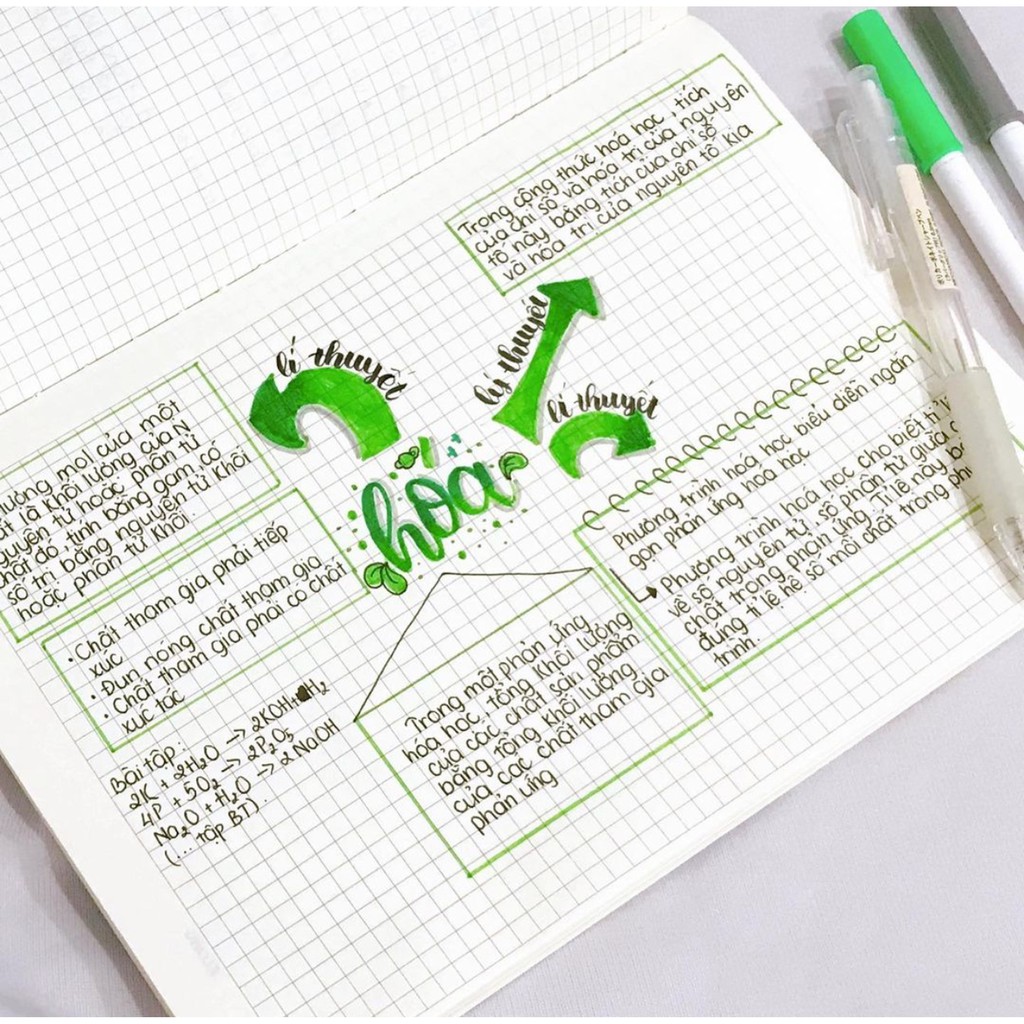 Trong công thức hoá học, tích
của chỉ số và hóa trị của nguyên
tố này bằng tích của chỉ số
và hóa trị của nguyên tố kia
lí thuyết
lý thuyết
lí thuyết
hóa
lượng mol của một
là khối lượng của N
nguyên tử hoặc phân tử
chất đó, tính bằng gam, có
số trị bằng nguyên tử khối
hoặc phân tử khối.
• Chất tham gia phải tiếp
xúc
• Đun nóng chất tham gia
• Chất tham gia phải có chất
xúc tác
Bài tập:
2K + 2H2O -> 2KOH + H2
4P + 5O2 -> 2P2O5
Na2O + H2O -> 2NaOH
(... tập BT).
Trong một phản ứng
hóa học, tổng khối lượng
của các chất sản phẩm
bằng tổng khối lượng
của các chất tham gia
phản ứng
Phương trình hoá học biểu diễn ngắn
gọn phản ứng hoá học
Phương trình hoá học cho biết tỉ
về số nguyên tử, số phân tử giữa
chất trong phản ứng. Tỉ lệ này
đúng tỉ lệ hệ số mỗi chất trong
trình.